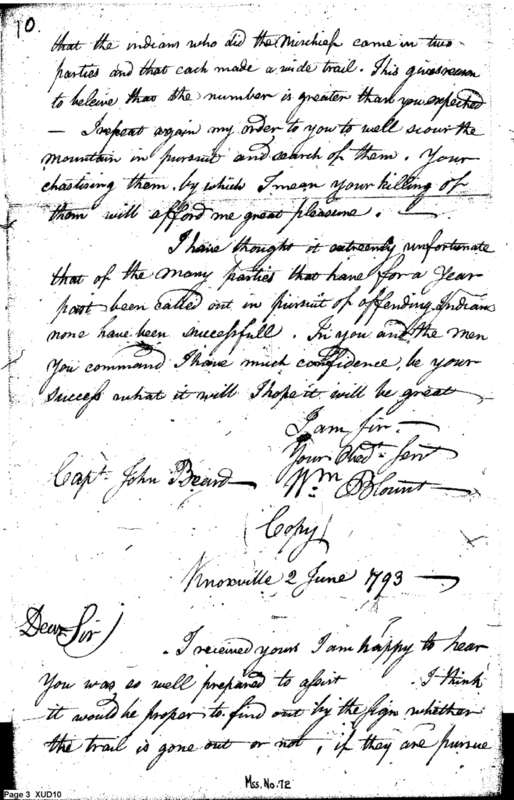 10.
that the indians who did the Mischief came in two
parties and that each made a wide trail. This gives reason
to beleive that the number is greater than you expected
— I repeat again my order to you to well scour the
mountain in pursuit and search of them. Your
chastising them, by which I mean your killing of
them will afford me great pleasure. —
I have thought it extreemly unfortunate
that of the many parties that have for a Year
past been called out in pursuit of offending Indians
none have been successfull. In you and the men
You command I have much confidence, be your
success what it will I hope it will be great
I am Sir —
Your Obedt. Servt
Capt. John Beard — Wm Blount —
(Copy)
Knoxville 2 June 1793 —
Dear Sir)
I received yours I am happy to hear
You was so well prepared to assist . I think
it would be proper to find out by the sign whether
the trail is gone out or not, if they are pursue
Mss. No. 72
Page 3 XUD10